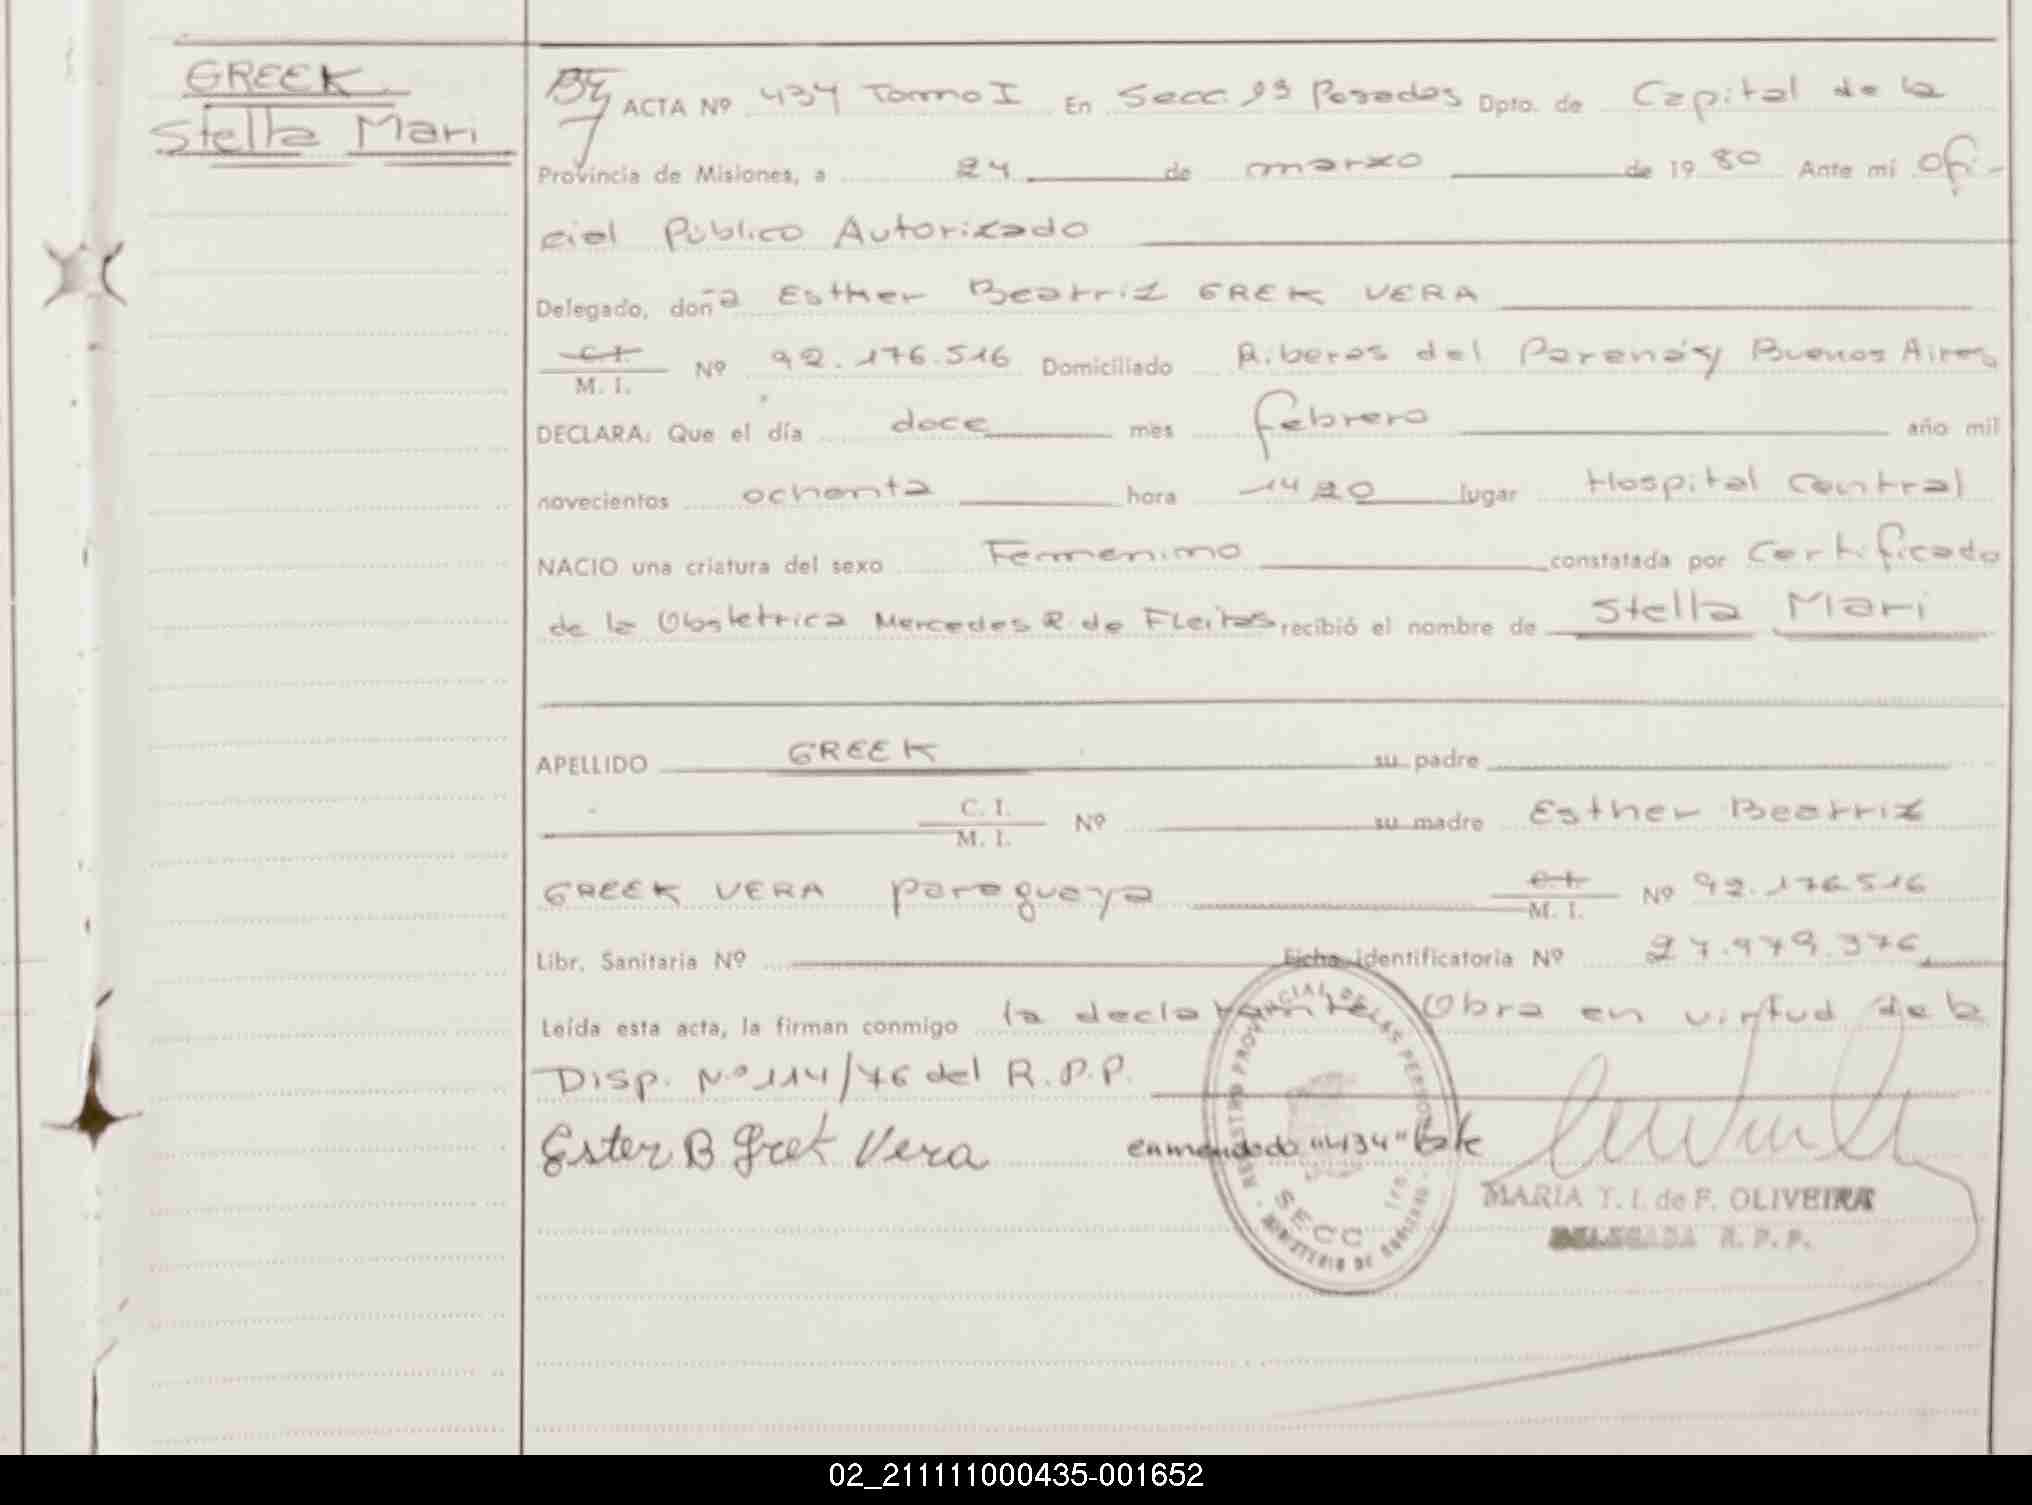 GREEK
Stella Mari
ACTA Nº 434 Tomo I En Secc. 1ª Posadas Dpto. de Capital de la
Provincia de Misiones, a 24 de marzo de 1980 Ante mí Ofi-
cial Público Autorizado
Delegado, doña Esther Beatriz GREK VERA
C.I.
M. I. Nº 92.176.516 Domiciliado Riberas del Paraná y Buenos Aires
DECLARA: Que el día doce mes febrero año mil
novecientos ochenta hora 14 20 lugar Hospital Central
NACIO una criatura del sexo Femenino constatada por Certificado
de la Obstetrica Mercedes R. de Fleitas recibió el nombre de Stella Mari
APELLIDO GREEK su padre
C. I.
M. I. Nº su madre Esther Beatriz
GREEK VERA paraguaya C.I.
M. I. Nº 92.176.516
Libr. Sanitaria Nº Ficha identificatoria Nº 27.979.376
Leída esta acta, la firman conmigo la declarante. Obra en virtud de la
Disp. Nº 114/76 del R.P.P.
Ester B Gret Vera enmendado "434" Vale
REGISTRO PROVINCIAL DE LAS PERSONAS
SECC 1ra.
MINISTERIO DE GOBIERNO
MARIA T. I. de F. OLIVEIRA
DELEGADA R. P. P.
02_211111000435-001652